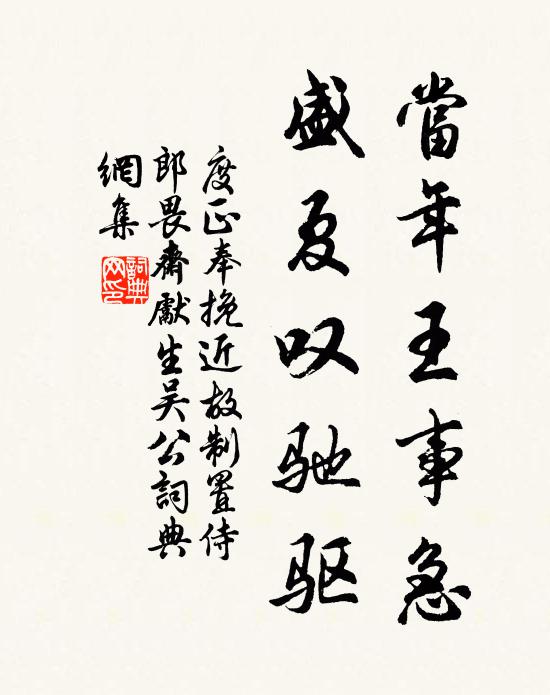 當年王事急
盛夏叹驰驱
度正奉挽近故制置侍
郎畏齋獻生吴公詞典
網集
詞典
网印